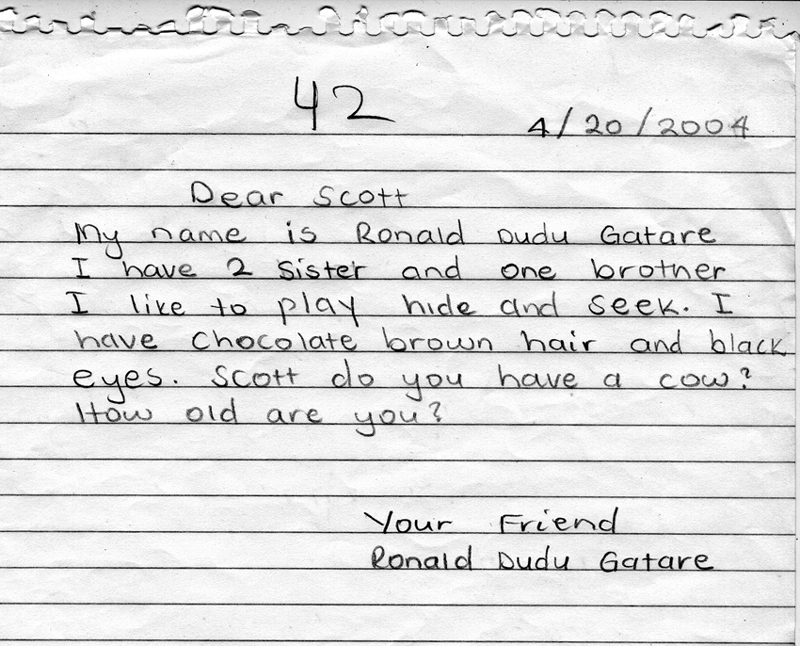 42
4/20/2004
Dear Scott
My name is Ronald Dudu Gatare
I have 2 sister and one brother
I like to play hide and seek. I
have chocolate brown hair and black
eyes. Scott do you have a cow?
How old are you?
Your Friend
Ronald Dudu Gatare